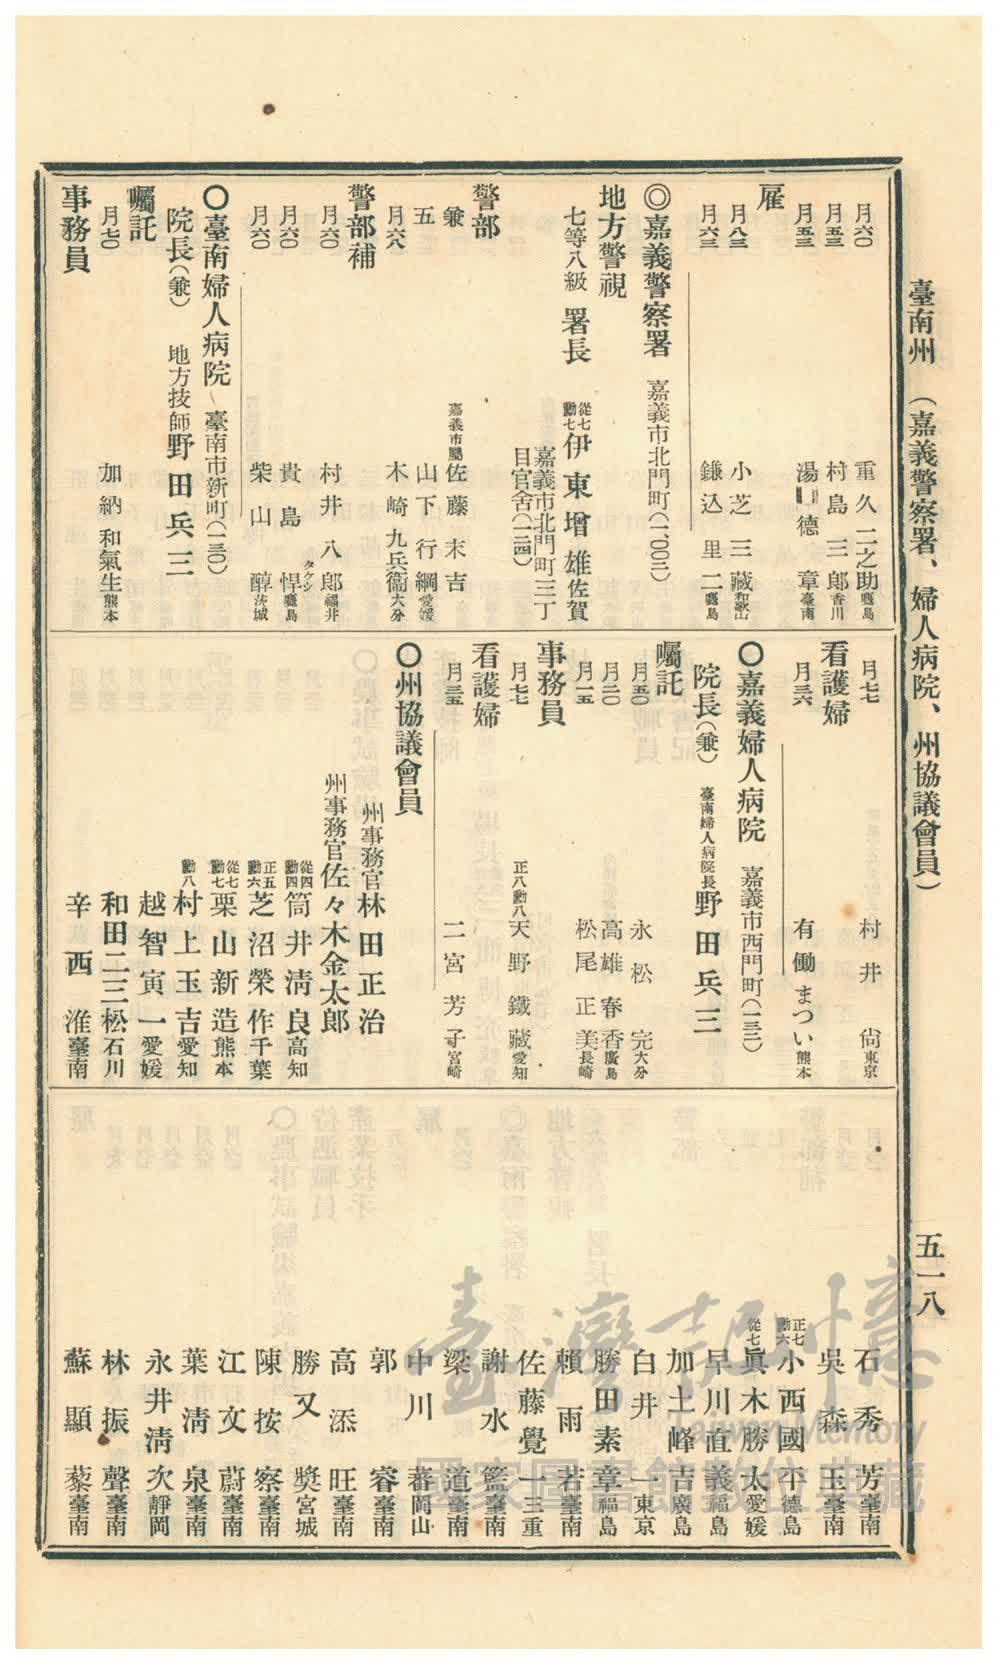 臺南州（嘉義警察署、婦人病院、州協議會員）
五一八
月六〇 重久二之助 鹿兒島
月五三 村島三郎 香川
月五三 湯 德章 臺南
雇
月八三 小芝三藏 和歌山
月六三 鎌込里二 鹿兒島
◎嘉義警察署 嘉義市北門町（一、〇〇二）
地方警視
七等八級 署長 從七勳七 伊東增雄 佐賀
嘉義市北門町三丁
目官舍（一二四）
警部
兼 嘉義市屬 佐藤末吉
五 山下行綱 愛媛
月六八 木崎九兵衞 大分
警部補
月六〇 村井八郎 福井
月六〇 貴島悍 タケシ 鹿兒島
月六〇 柴山醇 茨城
〇臺南婦人病院 臺南市新町（一三〇）
院長（兼） 地方技師 野田兵三
囑託
月七〇 加納和氣生 熊本
事務員
月七七 村井尙 東京
看護婦
月三六 有働まつい 熊本
〇嘉義婦人病院 嘉義市西門町（一三二）
院長（兼） 臺南婦人病院長 野田兵三
囑託
月五〇 永松完 大分
月二〇 高雄春香 廣島
月一五 松尾正美 長崎
事務員
月七七 正八勳八 天野鐵藏 愛知
看護婦
月三五 二宮芳子 宮崎
〇州協議會員
州事務官 林田正治
州事務官 佐々木金太郎
從四勳四 筒井淸良 高知
正五勳六 芝沼榮作 千葉
從七勳七 栗山新造 熊本
勳八 村上玉吉 愛知
越智寅一 愛媛
和田二三松 石川
辛西淮 臺南
石秀芳 臺南
吳森玉 臺南
正七勳六 小西國平 德島
從七 眞木勝太 愛媛
早川直義 福島
加土峰吉 廣島
白井一 東京
勝田素章 福島
賴雨若 臺南
佐藤覺一 三重
謝水籃 臺南
梁道 臺南
中川蕃 岡山
郭容 臺南
高添旺 臺南
勝又奬 宮城
陳按察 臺南
江文蔚 臺南
葉淸泉 臺南
永井淸次 靜岡
林振聲 臺南
蘇顯藜 臺南
臺灣記憶
Taiwan Memory
國家圖書館數位典藏